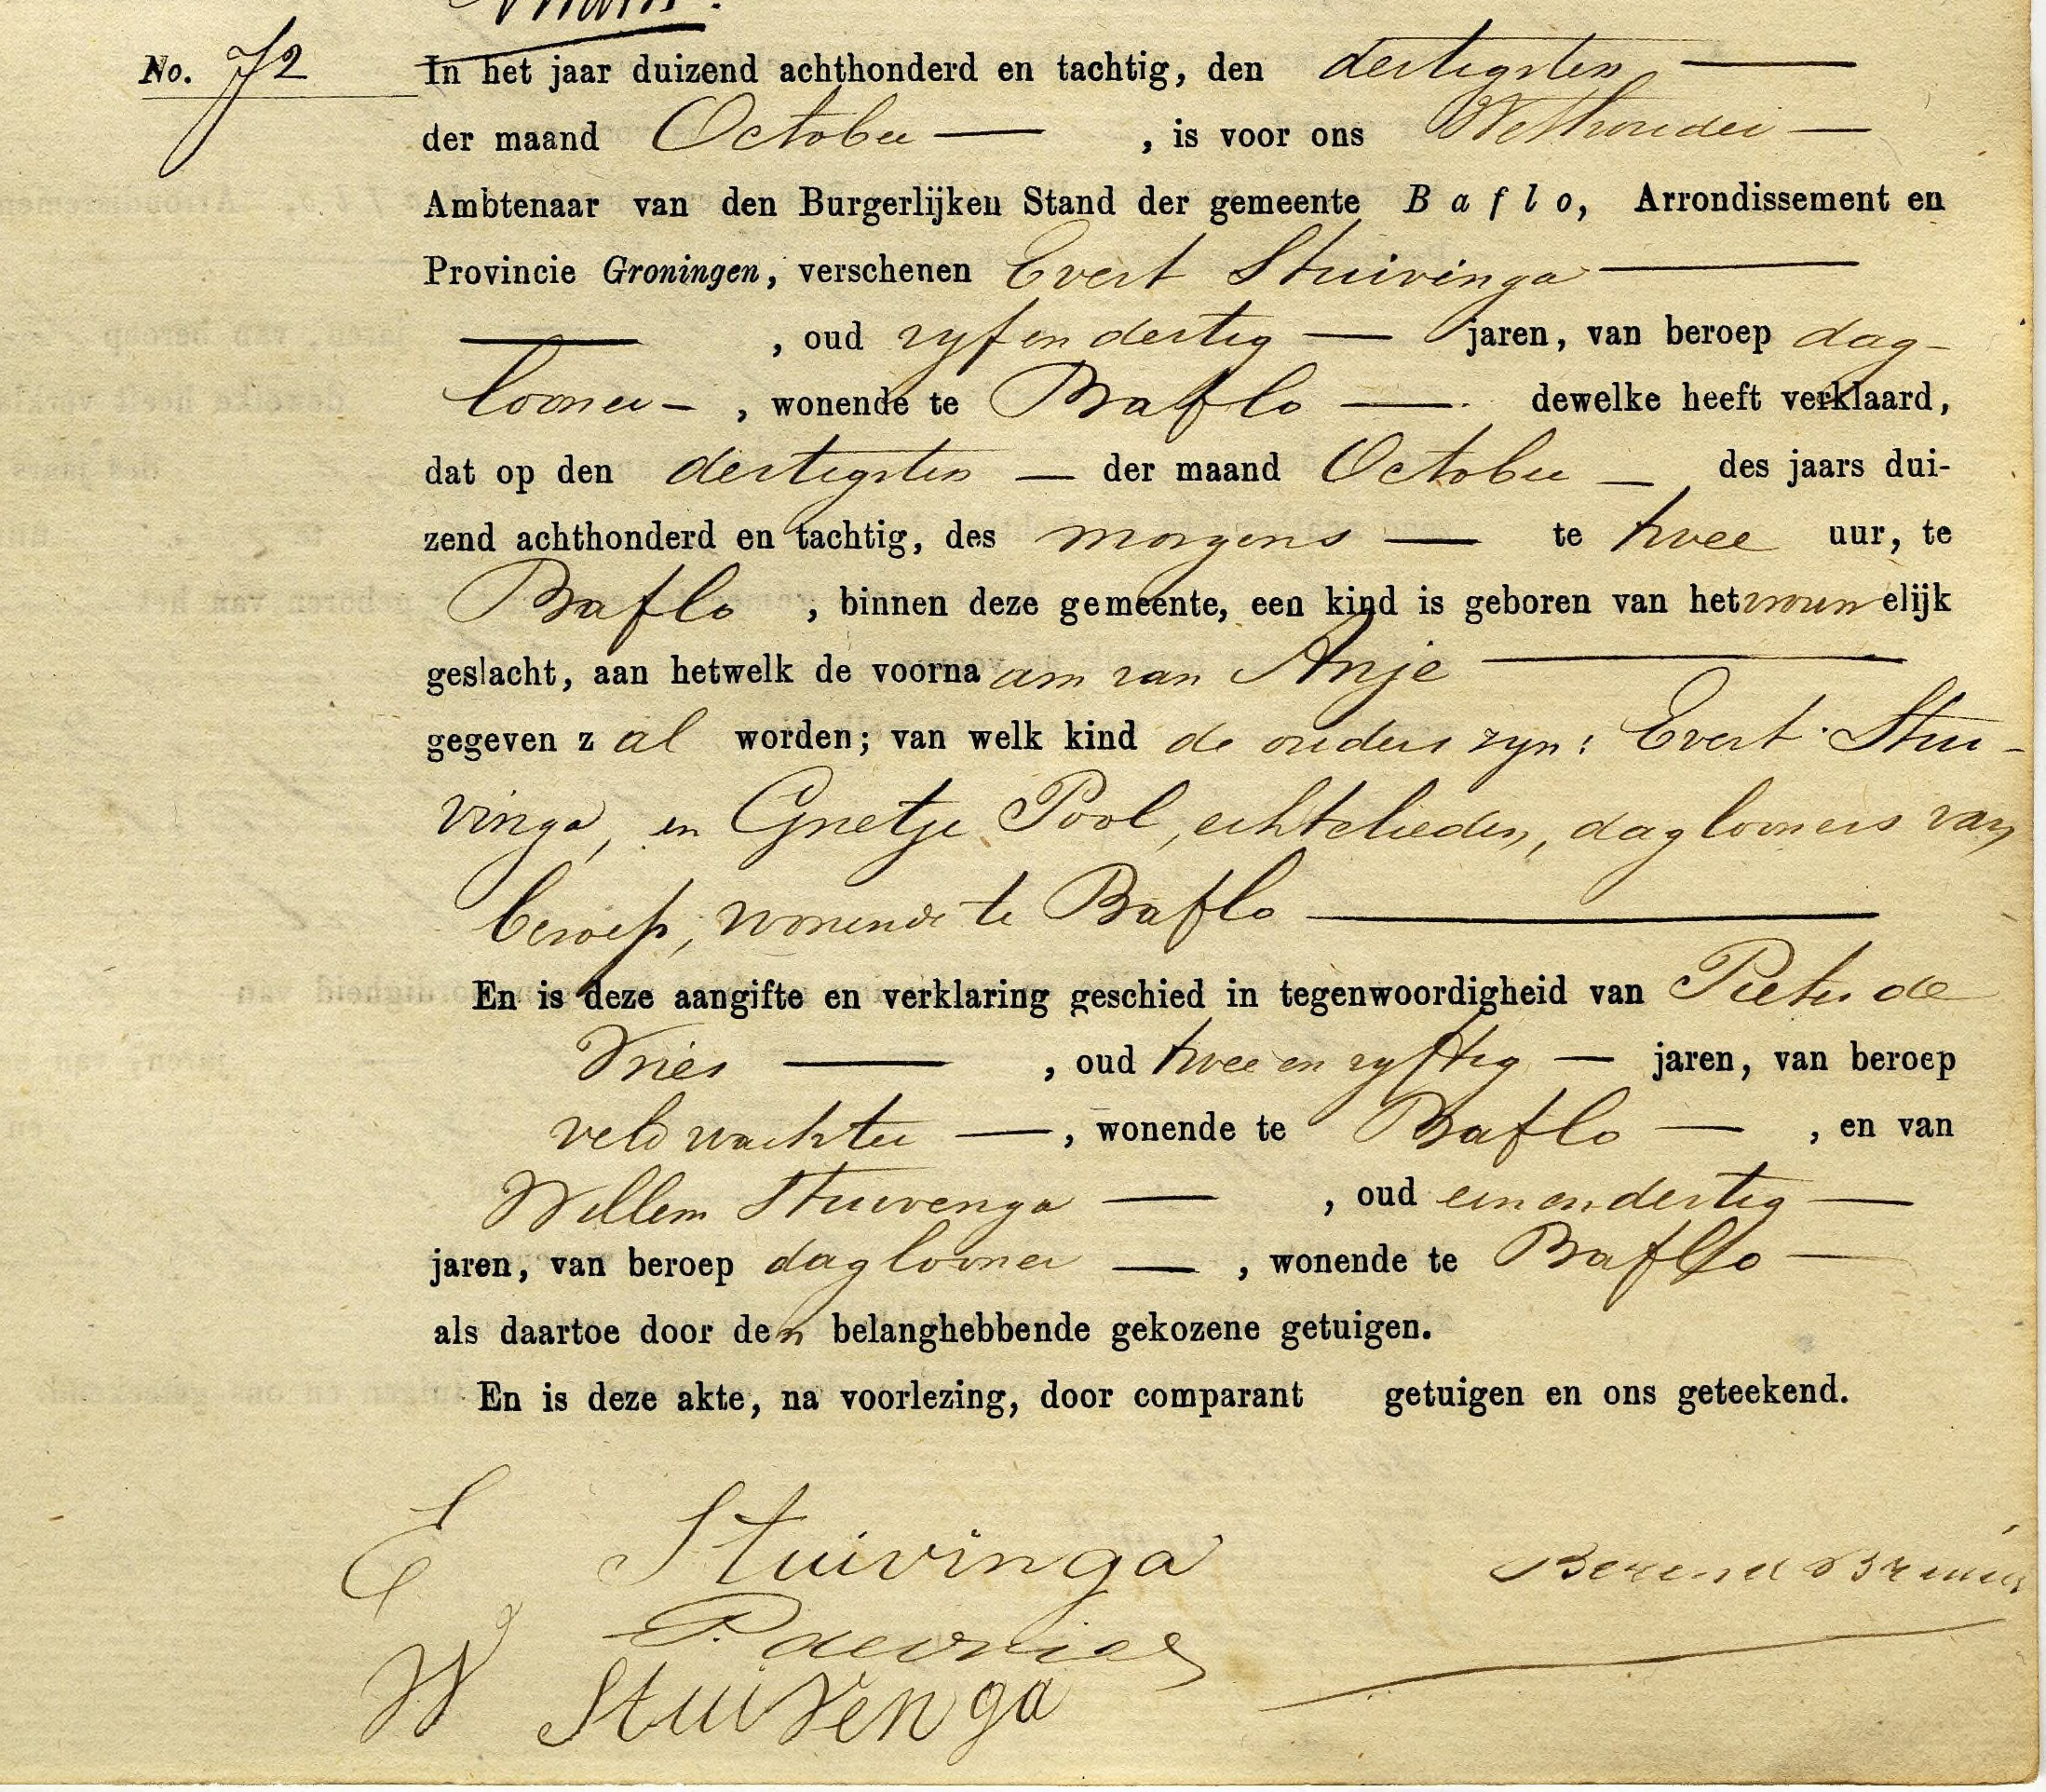 No. 72 In het jaar duizend achthonderd en tachtig, den dertigsten
der maand October, is voor ons Wethouder
Ambtenaar van den Burgerlijken Stand der gemeente Baflo, Arrondissement en
Provincie Groningen, verschenen Evert Stuivinga
, oud vyf en dertig jaren, van beroep dag-
looner, wonende te Baflo dewelke heeft verklaard,
dat op den dertigsten der maand October des jaars dui-
zend achthonderd en tachtig, des morgens te twee uur, te
Baflo, binnen deze gemeente, een kind is geboren van het vrouwelijk
geslacht, aan hetwelk de voornaam van Anje
gegeven zal worden; van welk kind de ouders zyn: Evert Stui-
vinga, en Grietje Pool, echtelieden, dagloners van
beroep, wonende te Baflo
En is deze aangifte en verklaring geschied in tegenwoordigheid van Pieter de
Vries, oud twee en vyftig jaren, van beroep
veldwachter, wonende te Baflo, en van
Willem Stuivenga, oud een en dertig
jaren, van beroep daglooner, wonende te Baflo
als daartoe door den belanghebbende gekozene getuigen.
En is deze akte, na voorlezing, door comparant getuigen en ons geteekend.
E Stuivinga
Berend
P. de vries
W Stuivenga